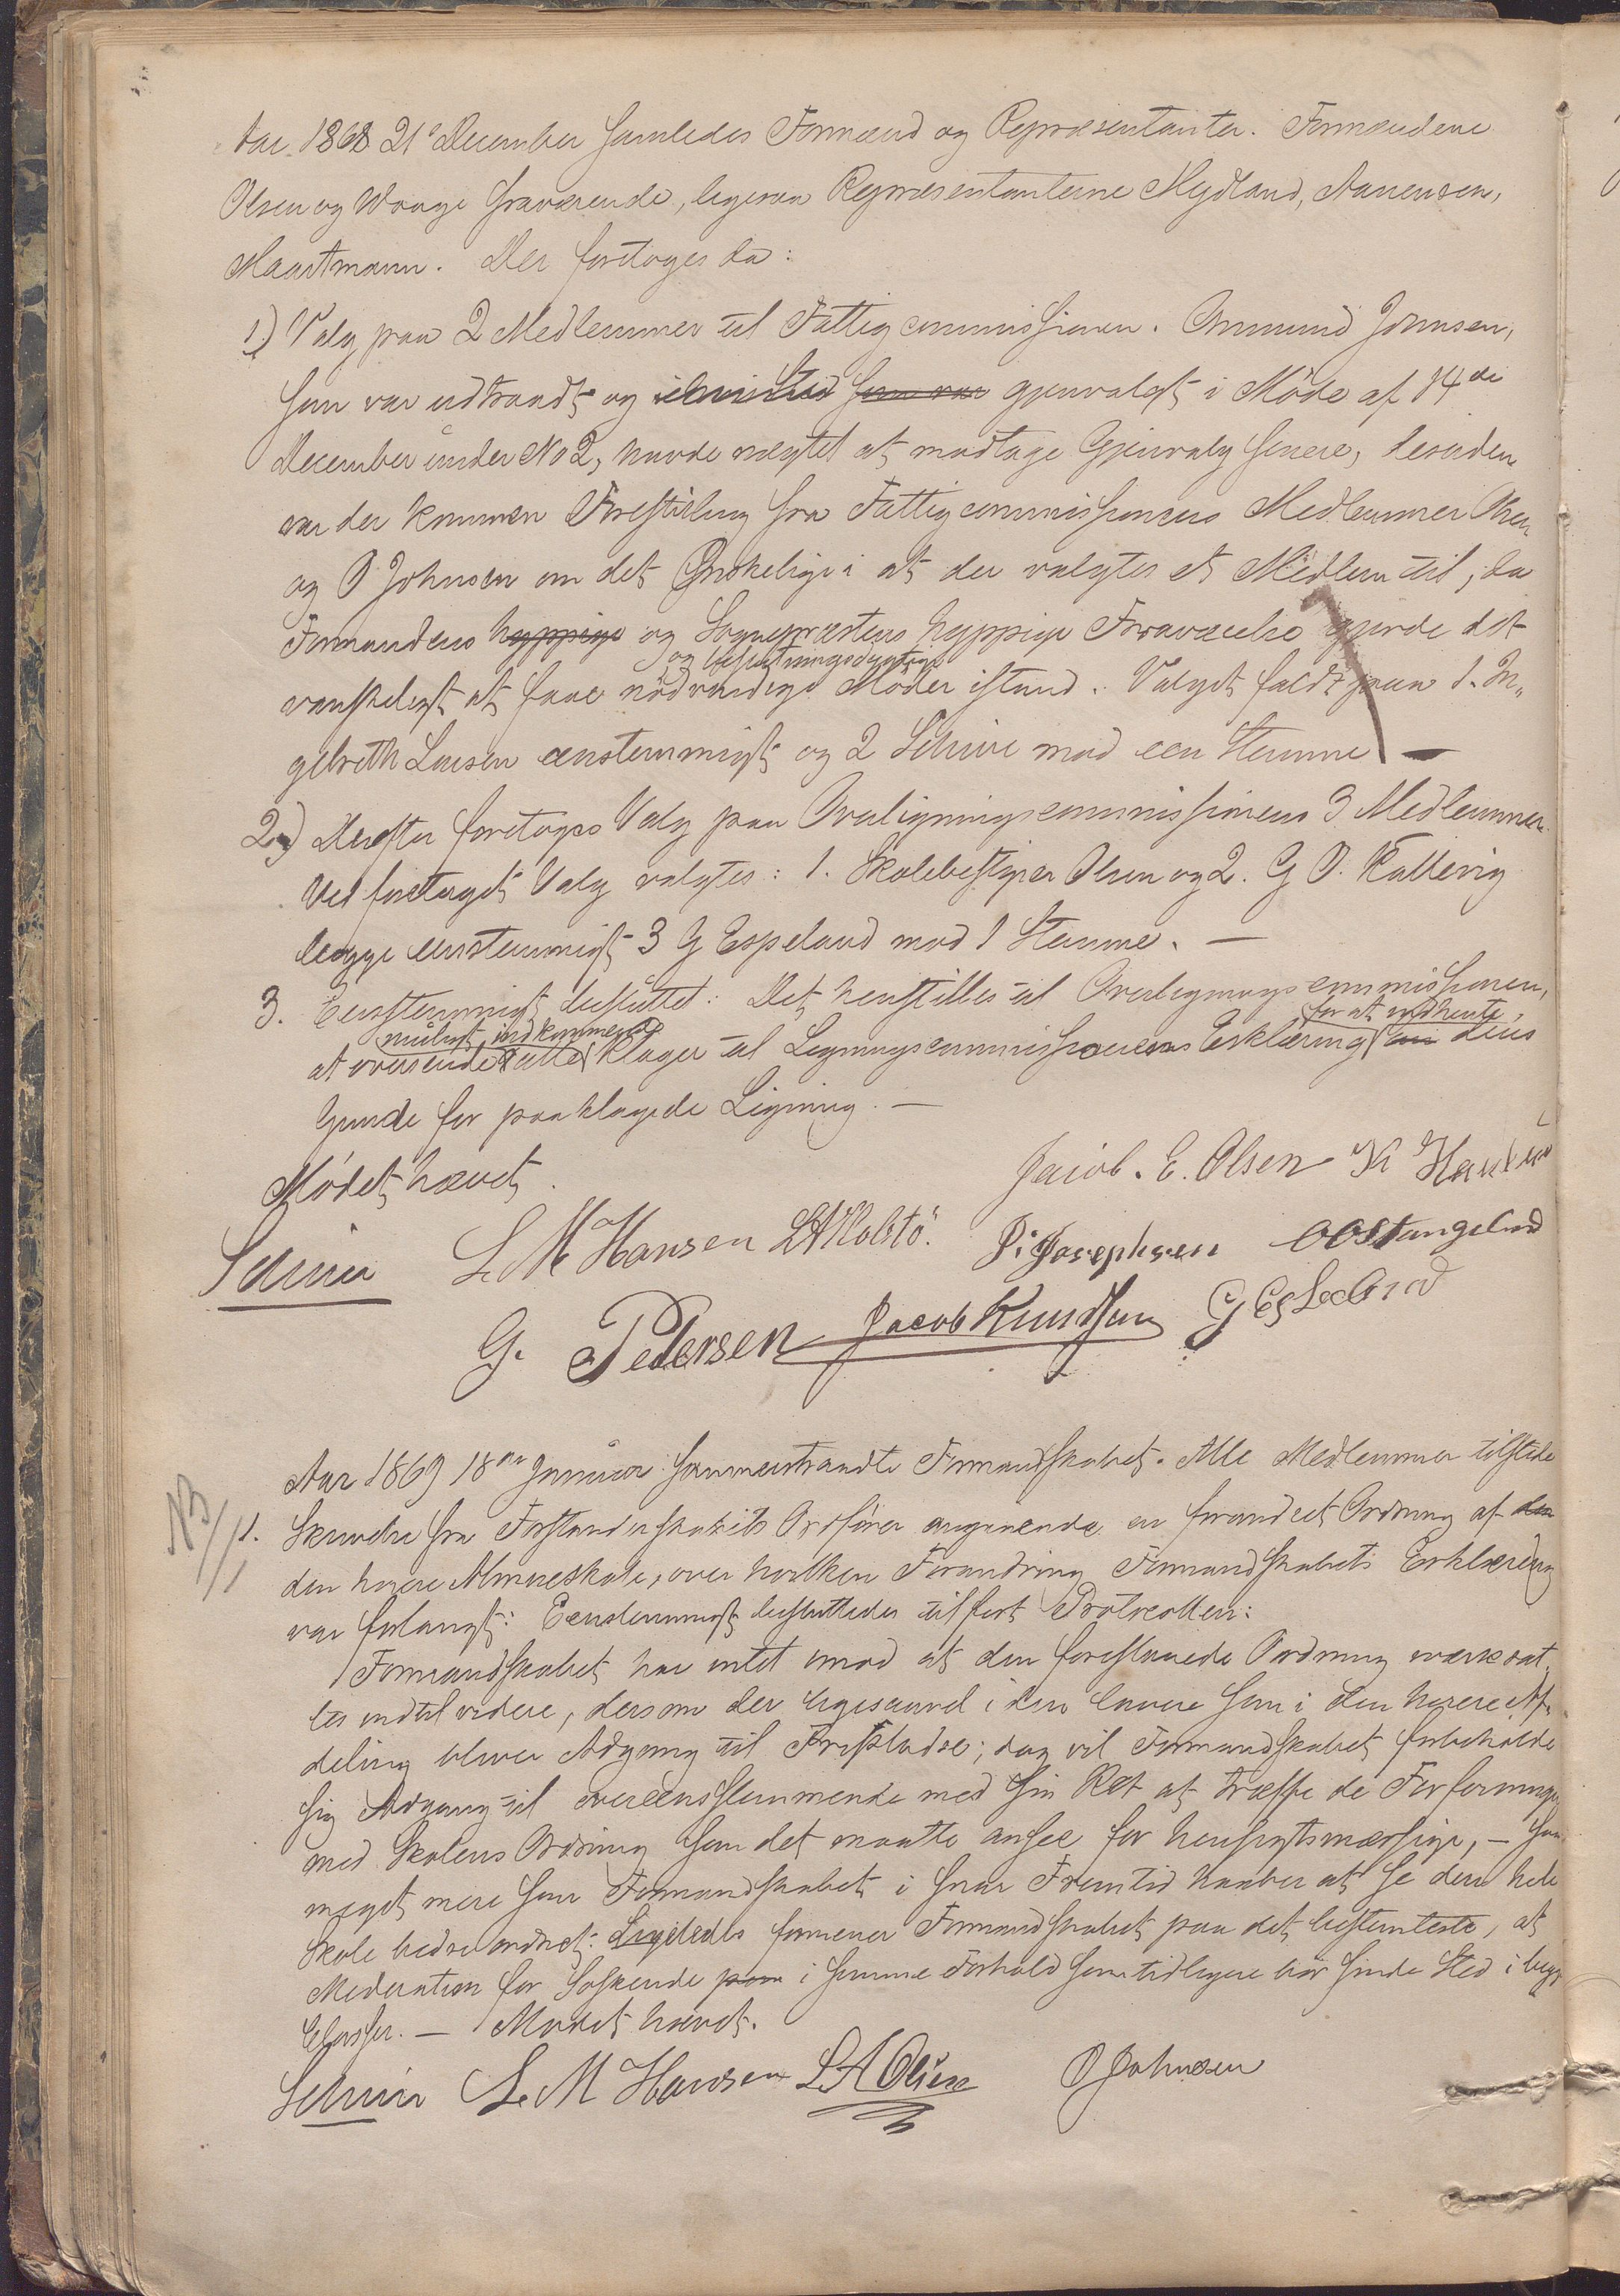 Aar 1868 21de December samledes Formænd og Repræsentanter. Formændene
Olsen og Waage fraværende, ligesaa Repræsentanterne Mydland, Aanensen,
Maartmann. Der foretoges da:
1) Valg paa 2 Medlemmer til Fattigcommissionen. Ommund Johnsen,
som var udtraadt og som var gjenvalgt i Møde af 14de
December under No 2, havde nægtet at modtage Gjenvalg senere, desuden
var der kommen Forestilling fra Fattigcommissionens Medlemmer
og O Johnsen om det Ønskelige i at der valgtes et Medlem til, da
Formandens hyppige og Sognepræstens hyppige Fraværelse gjorde det
og beslutningsdygtige
vanskeligt at faae nødvendige Møder istand. Valget faldt paa 1. In„
gebreth Larsen eenstemmigt og 2 Schiøe mod een Stemme —
2) Derefter foretoges Valg paa Overligningscommissionens 3 Medlemmer.
Ved foretaget Valg valgtes: 1. Skolebestyrer Olsen og 2. G O. Kallevig
begge eenstemmigt 3 G Espeland mod 1 Stemme. —
3. Eenstemmigt besluttet: Det henstilles til Overligningscommissionen,
muligt indkommende for at indhente,
at oversende alle Klager til Ligningscommissionens Erklæring om dens
Grunde for paaklagede Ligning. —
Mødet hævet.
Jacob. E. Olsen K Hansen
L M Hansen LA Holstø. P. Josephsen OO Stangeland
G. Pedersen Jacob Knudsen G Espeland
Aar 1869 18de Januar sammentraadte Formandskabet. Alle Medlemmer tilstede
NB
1. Skrivelse fra Forstanderskabets Ordfører angaaende en forandret Ordning af den
den høiere Almueskole, over hvilken Forandring Formandskabets Erklæring
var forlangt: Eenstemmigt besluttedes tilført Protocollen:
Formandskabet har intet imod at den foreslaaede Ordning værksæt„
tes indtil videre, dersom der ligesaavel i den lavere som i den høiere Af„
deling bliver Adgang til Fripladse; dog vil Formandskabet forbeholde
sig Adgang til overeensstemmende med sin Ret at træffe de Forføininger
med Skolens Ordning som det maatte ansee for hensigtsmæssige, — saa
meget mere som Formandskabet i snar Fremtid haaber at se den hele
Skole bedre ordnet: Ligeledes formener Formandskabet paa det bestemteste, at
Moderation for Søskende paa i samme Forhold som tidligere bør finde Sted i begge
Classer. — Mødet hævet.
L. M Hansen L A Olsen O Johnsen